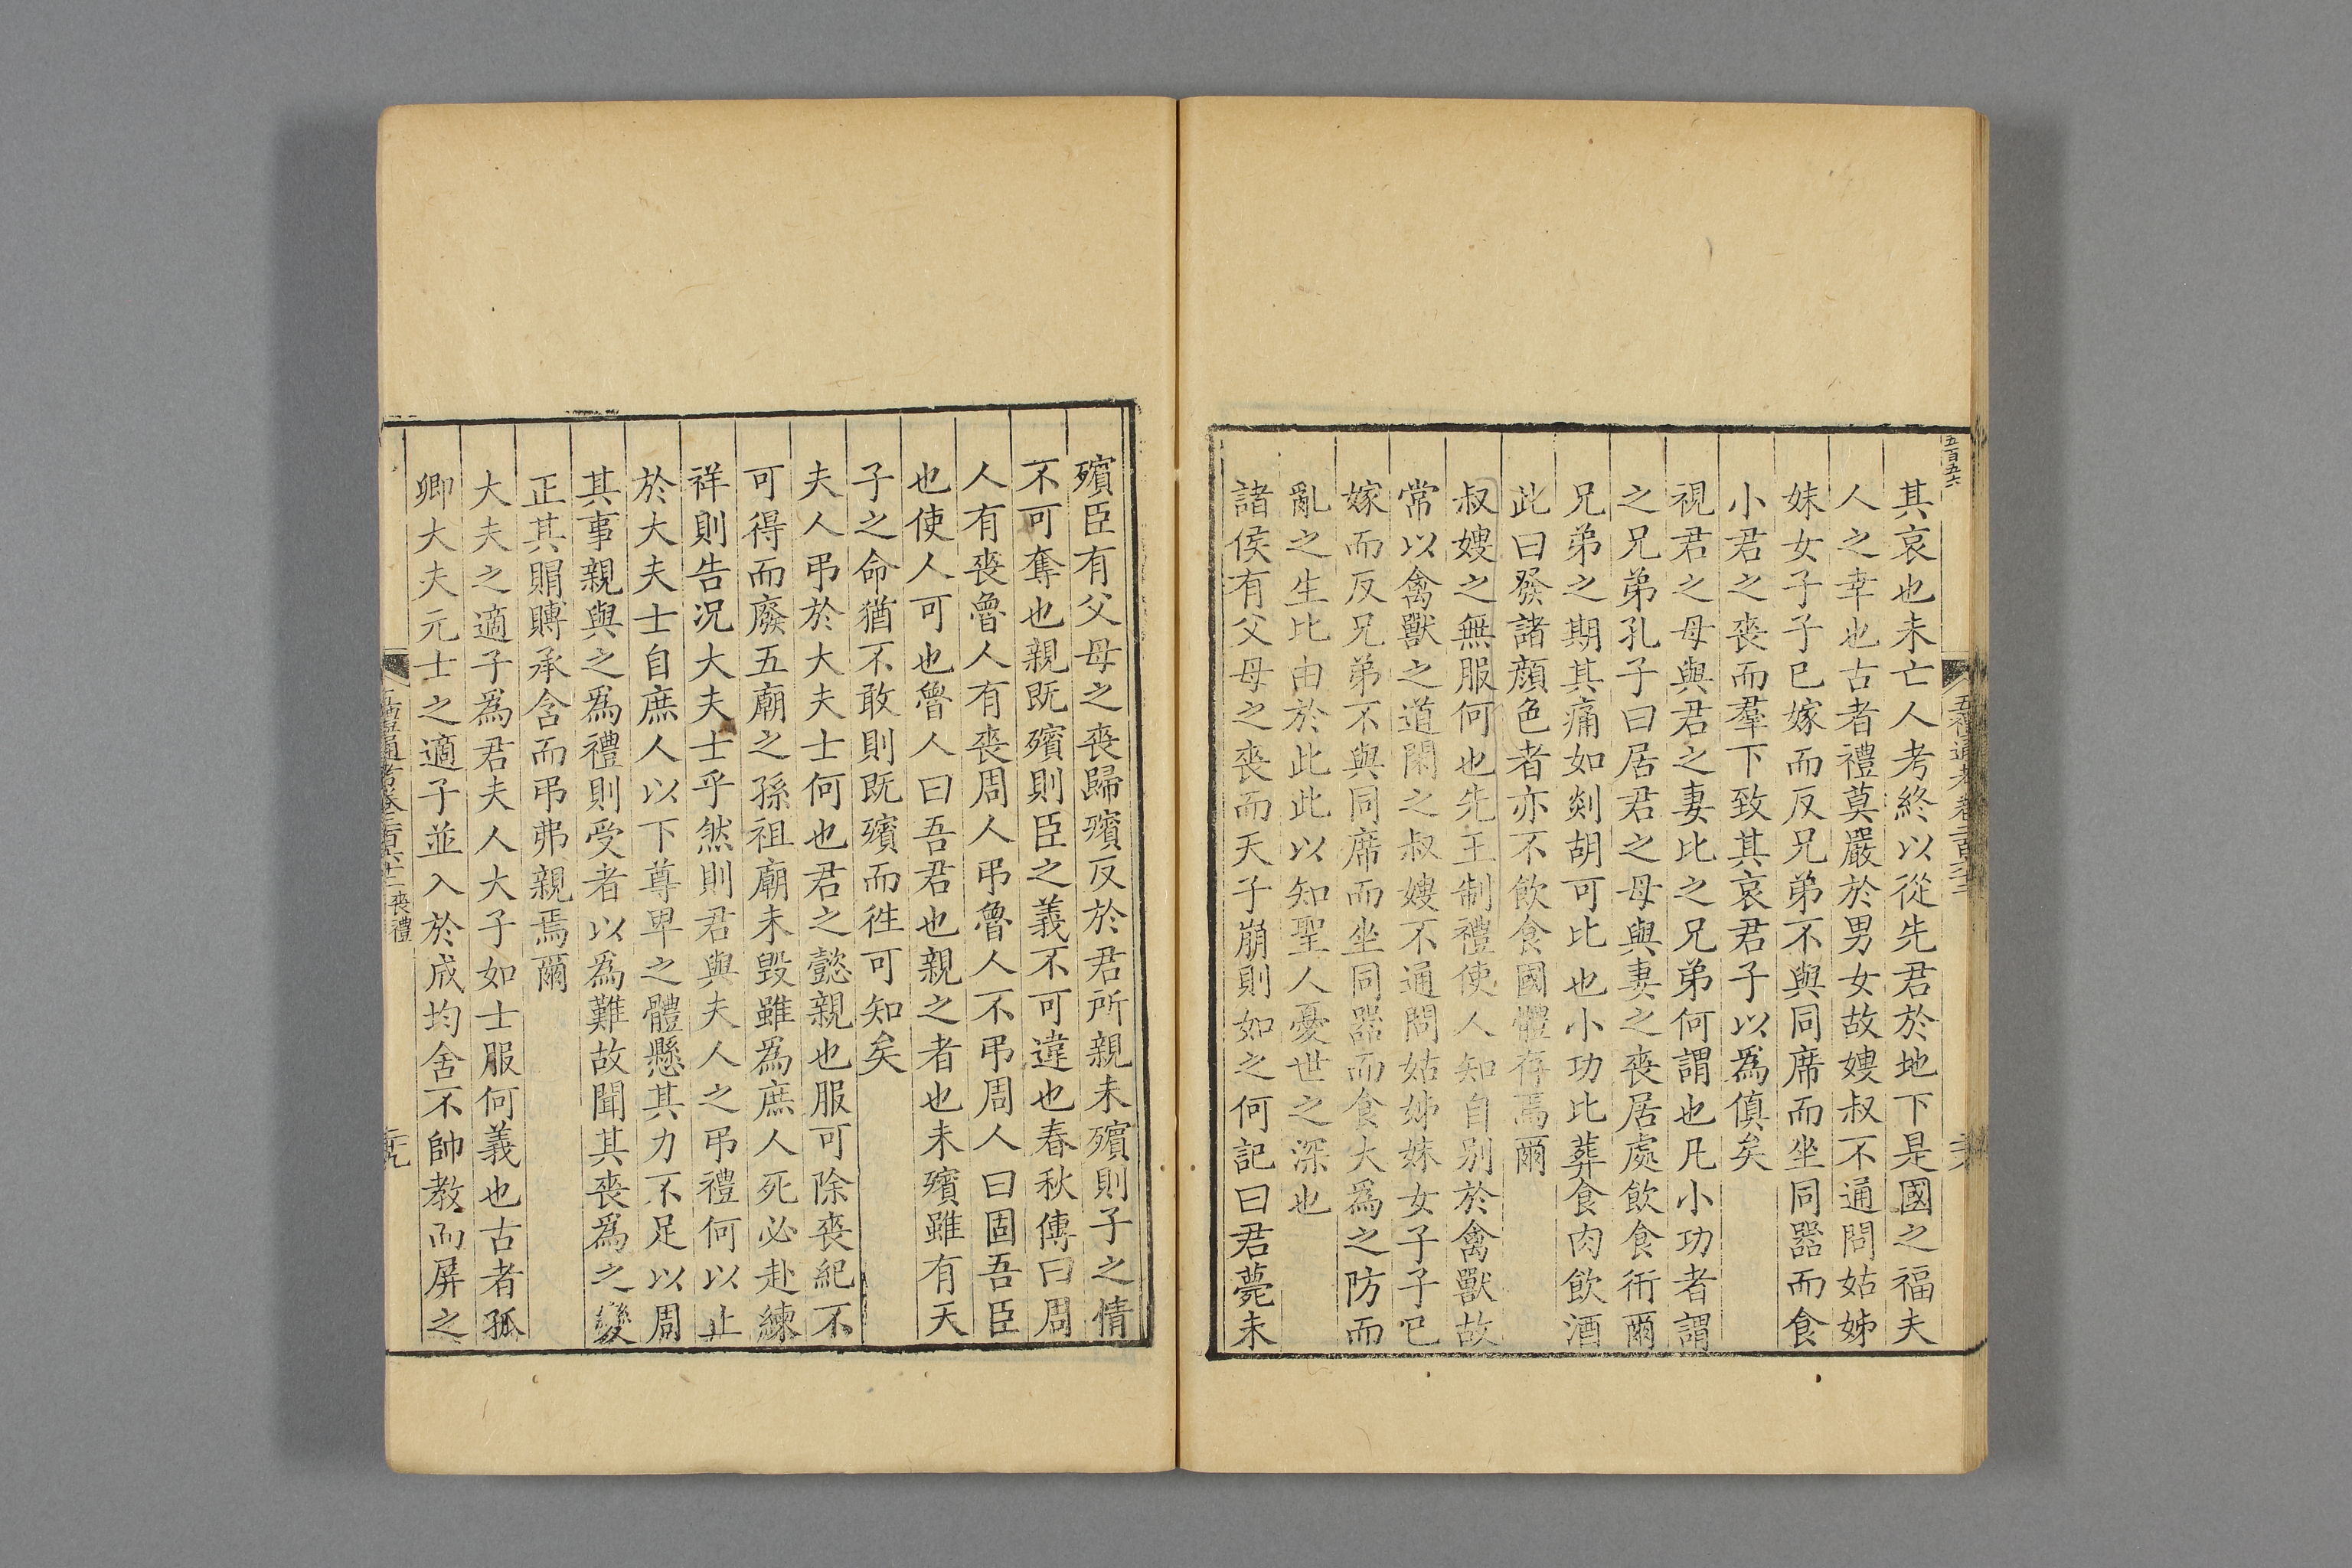 五百五六
五禮通考卷二百六十二
其哀也未亡人考終以從先君於地下是國之福夫
人之幸也古者禮莫嚴於男女故嫂叔不通問姑姊
妹女子子巳嫁而反兄弟不與同席而坐同器而食
小君之喪而羣下致其哀君子以爲傎矣
視君之母與君之妻比之兄弟何謂也凡小功者謂
之兄弟孔子曰居君之母與妻之喪居處飲食衎爾
兄弟之期其痛如剡胡可比也小功比葬食肉飲酒
此曰發諸顏色者亦不飲食國體存焉爾
叔嫂之無服何也先王制禮使人知自别於禽獸故
常以禽獸之道閑之叔嫂不通問姑姊妹女子子巳
嫁而反兄弟不與同席而坐同器而食大爲之防而
亂之生比由於此此以知聖人憂世之深也
諸侯有父母之喪而天子崩則如之何記曰君薨未
殯臣有父母之喪歸殯反於君所親未殯則子之情
不可奪也親既殯則臣之義不可違也春秋傳曰周
人有喪魯人有喪周人弔魯人不弔周人曰固吾臣
也使人可也魯人曰吾君也親之者也未殯雖有天
子之命猶不敢則既殯而徃可知矣
夫人弔於大夫士何也君之懿親也服可除喪紀不
可得而廢五廟之孫祖廟未毁雖爲庶人死必赴練
祥則告况大夫士乎然則君與夫人之弔禮何以止
於大夫士自庶人以下尊卑之體懸其力不足以周
其事親與之爲禮則受者以爲難故聞其喪爲之變
正其賵賻承含而弔弗親焉爾
大夫之適子爲君夫人大子如士服何義也古者孤
卿大夫元士之適子並入於成均舍不帥教而屏之
五禮通考卷二百六十二 喪禮